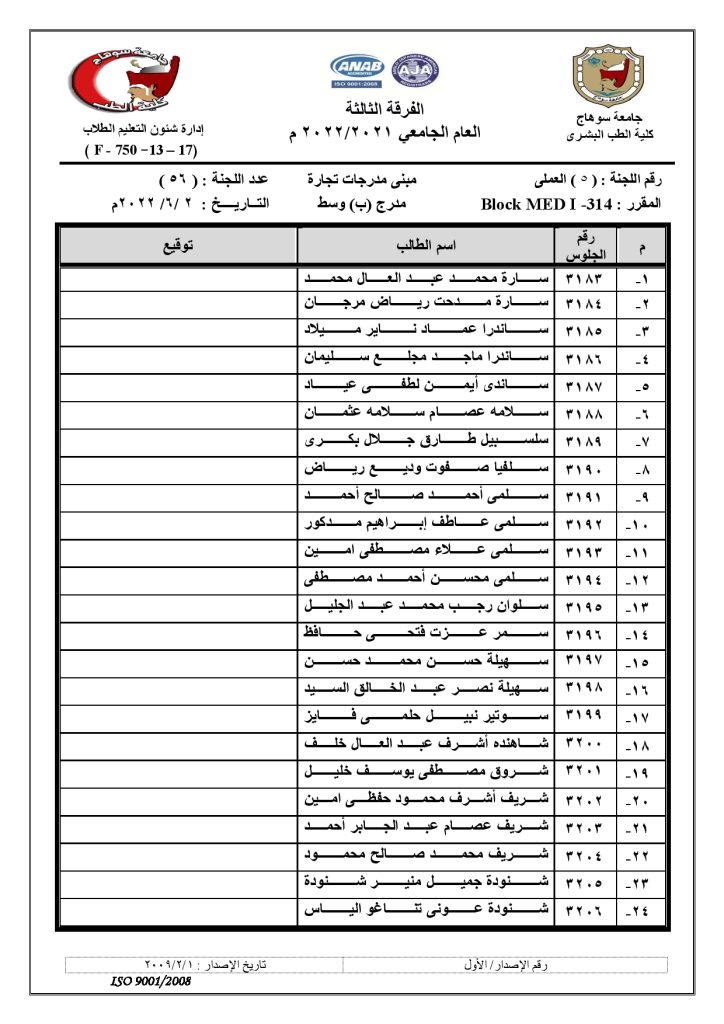 جامعة سوهاج
كلية الطب البشرى
ANAB
ACCREDITED
ISO 9001:2008
AJA
الفرقة الثالثة
العام الجامعي ٢٠٢٢/٢٠٢١ م
جامعة سوهاج
كلية الطب
إدارة شئون التعليم الطلاب
( F - 750 –13 – 17)
رقم اللجنة : ( ٥ ) العملى مبنى مدرجات تجارة عدد اللجنة : ( ٥٦ )
المقرر : Block MED I -314 مدرج (ب) وسط التاريخ : ٢ /٦/ ٢٠٢٢م
م رقم الجلوس اسم الطالب توقيع
١- ٣١٨٣ سارة محمد عبد العال محمد
٢- ٣١٨٤ سارة مدحت رياض مرجان
٣- ٣١٨٥ ساندرا عماد نناير ميلاد
٤- ٣١٨٦ ساندرا ماجد مجلع سليمان
٥- ٣١٨٧ ساندى أيمن لطفى عياد
٦- ٣١٨٨ سلامه عصام سلامه عثمان
٧- ٣١٨٩ سلسبيل طارق جلال بكرى
٨- ٣١٩٠ سلفيا صفوت وديع رياض
٩- ٣١٩١ سلمى أحمد صالح أحمد
١٠- ٣١٩٢ سلمى عاطف إبراهيم مدكور
١١- ٣١٩٣ سلمى علاء مصطفى امين
١٢- ٣١٩٤ سلمى محسن أحمد مصطفى
١٣- ٣١٩٥ سلوان رجب محمد عبد الجليل
١٤- ٣١٩٦ سمر عزت فتحى حافظ
١٥- ٣١٩٧ سهيلة حسن محمد حسن
١٦- ٣١٩٨ سهيلة نصر عبد الخالق السيد
١٧- ٣١٩٩ سوتير نبيل حلمى فايز
١٨- ٣٢٠٠ شاهنده أشرف عبد العال خلف
١٩- ٣٢٠١ شروق مصطفى يوسف خليل
٢٠- ٣٢٠٢ شريف أشرف محمود حفظى امين
٢١- ٣٢٠٣ شريف عصام عبد الجابر أحمد
٢٢- ٣٢٠٤ شريف محمد صالح محمود
٢٣- ٣٢٠٥ شنودة جميل منير شنودة
٢٤- ٣٢٠٦ شنودة عونى تناغو الياس
رقم الإصدار/ الأول تاريخ الإصدار : ٢٠٠٩/٢/١
ISO 9001/2008